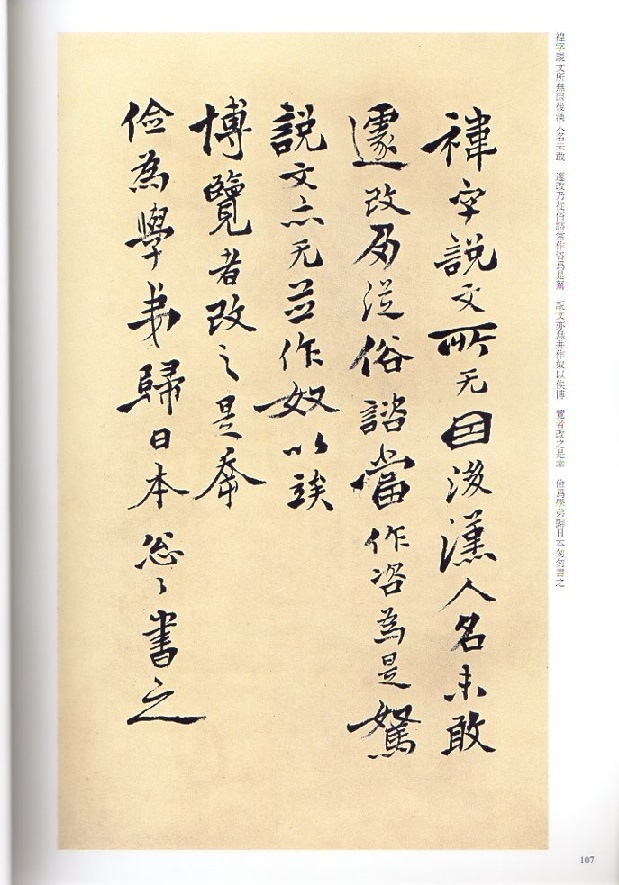 禕字説文所无因後漢人名未敢
遽改乃從俗諮當作咨為是駑
説文亦无並作奴以竢
博覽者改之是幸
儉為學弟歸日本怱〻書之
禕字説文所無因後漢人名未敢　遽改乃從俗諮當作咨爲是駑　説文亦無并作奴以俟博　覽者改之是幸　儉爲學弟歸日本匆匆書之
107